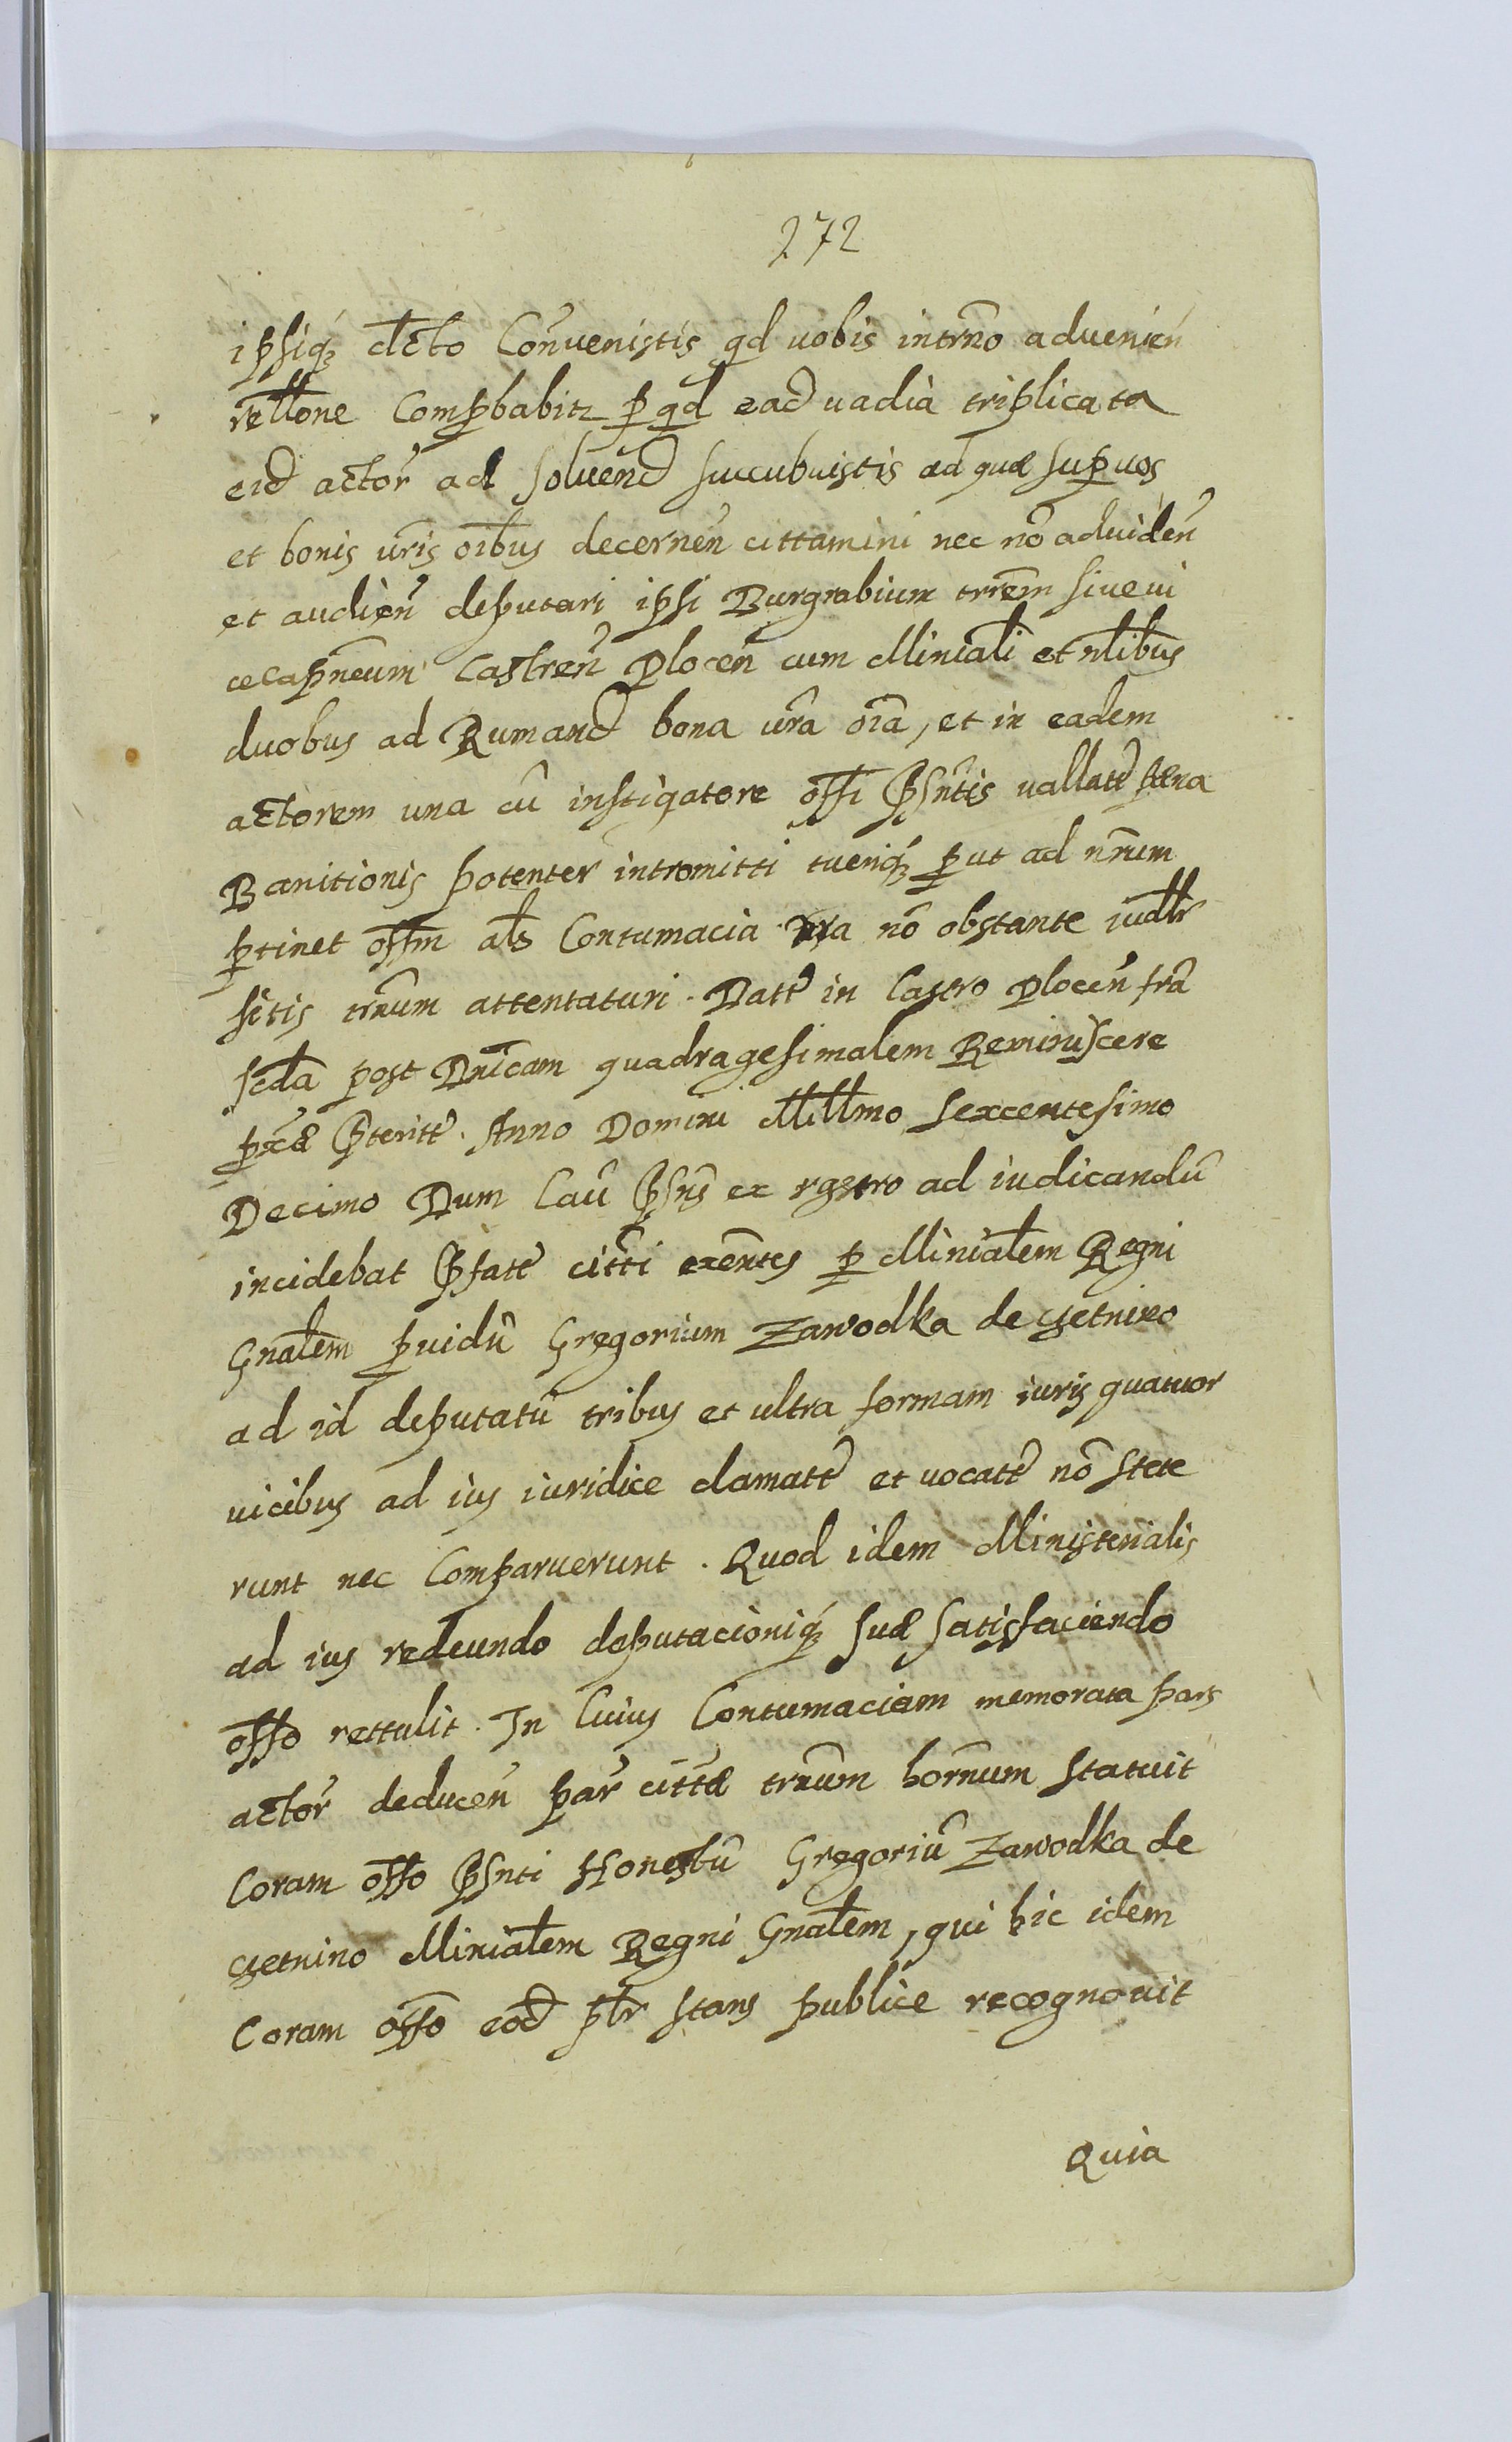 272
ipsiq́ꝫ decto Convenistis qd vobis intrno advenień
rellone Comprobabitꝫ ꝑ qd ead vadia triplicata
eid actor ad solvend succubuistis ad quæ super vos
et bonis vris oibus decernen̄ cittamini nec nō advidēn
et audień deputari ipsi Burgrabium trrem sive vi
cecapneum Castreń Plocen̄ cum Miniali et nlibus
duobus ad Rumand bona vra oia, et in eadem
actorem una cū instigatore offi pſntis vallatt̄ pæna
Banitionis potenter intromitti tueriq́ꝫ ꝓut ad nrum
ꝑtinet offm als Contumacia vra nō obstante iudlr
sitis trnum attentaturi. Datt̄ in Castro Plocen̄ fra
scda post Dnicam quadragesimalem Reminiscere
ꝓxæ pteritt̄. Anno Domini Millmo Sexcentesimo
Decimo Dum Cau̅ pſns ex rgestro ad iudicandū
incidebat pfatt̄ citti exentes ꝑ Minialem Regni
Gnalem ꝓvidū Gregorium Zawodka de czetnino
ad id deputatū tribus et ultra formam iuris quatuor
vicibus ad ius iuridice clamatt̄ et vocatt̄ nō stete
runt nec Comparuerunt. Quod idem Ministerialis
ad ius redeundo deputacioniq́ꝫ suæ satisfaciendo
offo rettulit. In Cuius Contumaciam memorata pars
actor̄ deducen̄ par̄ cittæ trnum hornum statuit
Coram offo pſnti Honestū Gregoriū Zawodka de
czetnino Minialem Regni Gnalem, qui hic idem
Coram offo eod plr stans publice recognovit
Quia